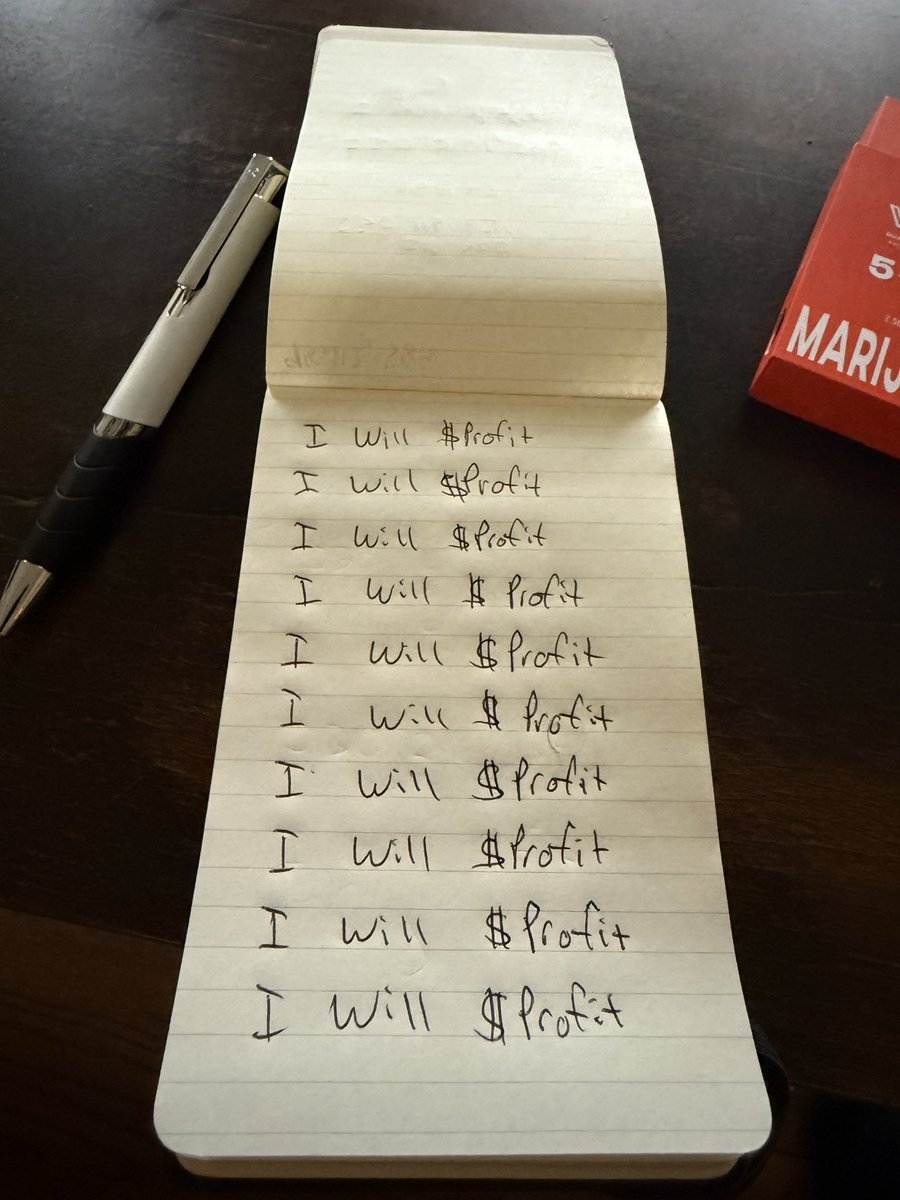 I Will $Profit
I Will $Profit
I Will $Profit
I Will $ Profit
I Will $Profit
I Will $ Profit
I Will $Profit
I Will $Profit
I Will $Profit
I Will $Profit
5
MARIJ